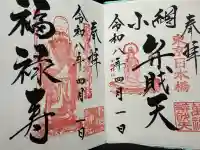 奉拝
小網
弁財天
東京日本橋
令和八年四月一日
奉拝
福禄寿
令和八年四月一日